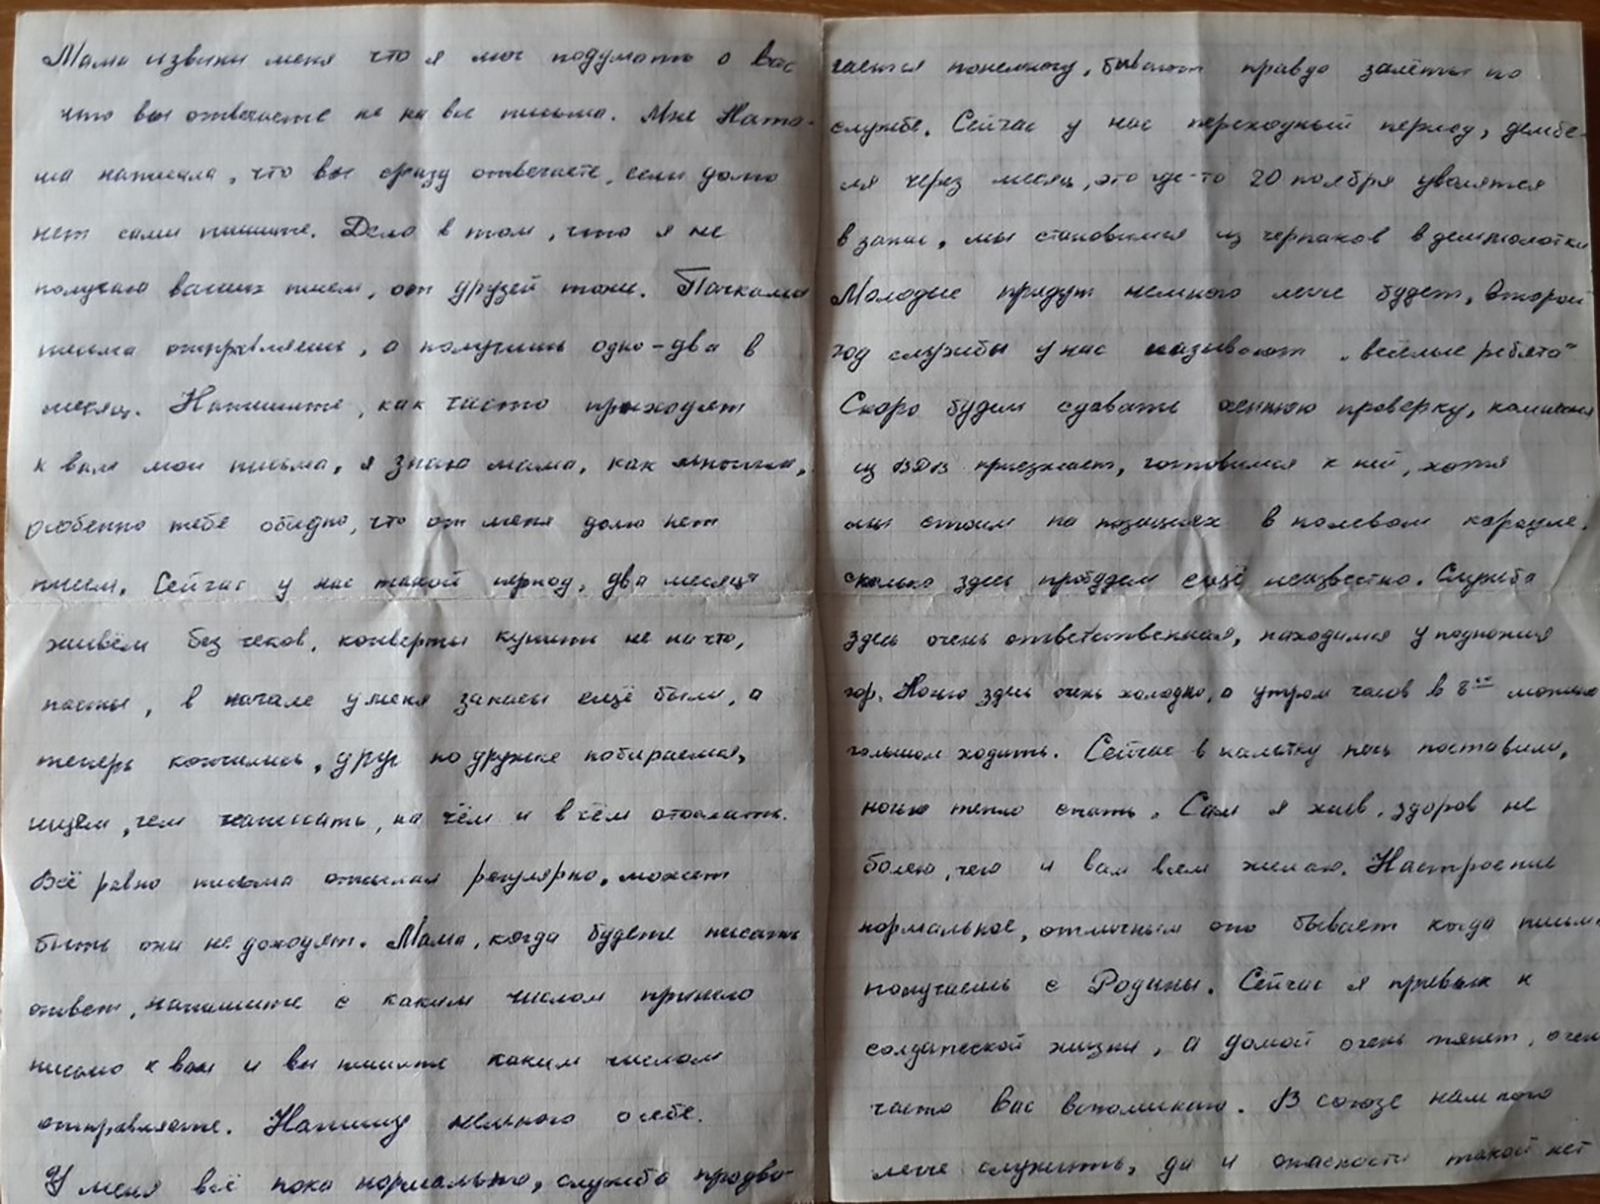 Мама извини меня что я мог подумать о вас
что вы отвечаете не на все письма. Мне Ната-
ша написала, что вы сразу отвечаете, если долго
нет сами пишите. Дело в том, что я не
получаю ваших писем, от друзей тоже. Пачками
письма отправляешь, а получишь одно-два в
месяц. Напишите, как часто приходят
к вам мои письма, я знаю мама, как многим,
особенно тебе обидно, что от меня долго нет
писем. Сейчас у нас такой период, два месяца
живём без чеков, конверты купить не на что,
пасты, в начале у меня запасы ещё были, а
теперь кончились, друг по дружке побираемся,
ищем, чем написать, на чём и в чём отослать.
Всё равно письма отсылал регулярно, может
быть они не доходят. Мама, когда будете писать
ответ, напишите с каким числом пришло
письмо к вам и вы пишите каким числом
отправляете. Напишу немного о себе.
У меня всё пока нормально, служба продви-
гается понемногу, бывают правда залёты по
службе. Сейчас у нас переходный период, дембе-
ля через месяц, это где-то 20 ноября уволятся
в запас, мы становимся из черпаков в
Молодые придут немного легче будет, второй
год службы у нас называют „весёлые ребята"
Скоро будем сдавать осеннюю проверку, комиссия
из ВДВ приезжает, готовимся к ней, хотя
мы стоим на позициях в полевом карауле.
сколько здесь пробудем ещё неизвестно. Служба
здесь очень ответственная, находимся у подножия
гор. Ночью здесь очень холодно, а утром часов в 8⁰⁰ можно
голышом ходить. Сейчас в палатку печь поставили,
ночью тепло спать. Сам я жив, здоров не
болею, чего и вам всем желаю. Настроение
нормальное, отличным оно бывает когда письмо
получаешь с Родины. Сейчас я привык к
солдатской жизни, а домой очень тянет, очень
часто Вас вспоминаю. В союзе намного
легче служить, да и опасности такой нет